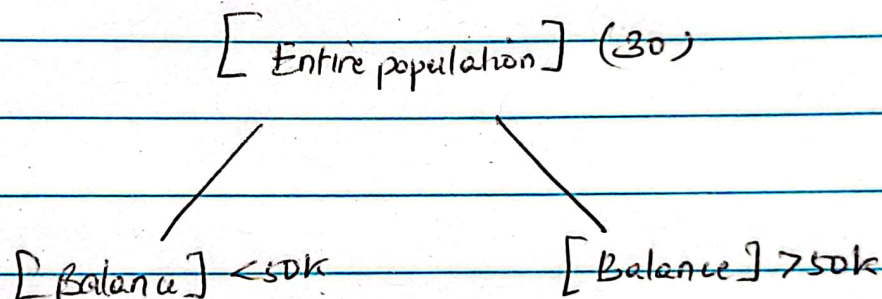 [Entire population] (30)
[Balance] <50K [Balance] >50K